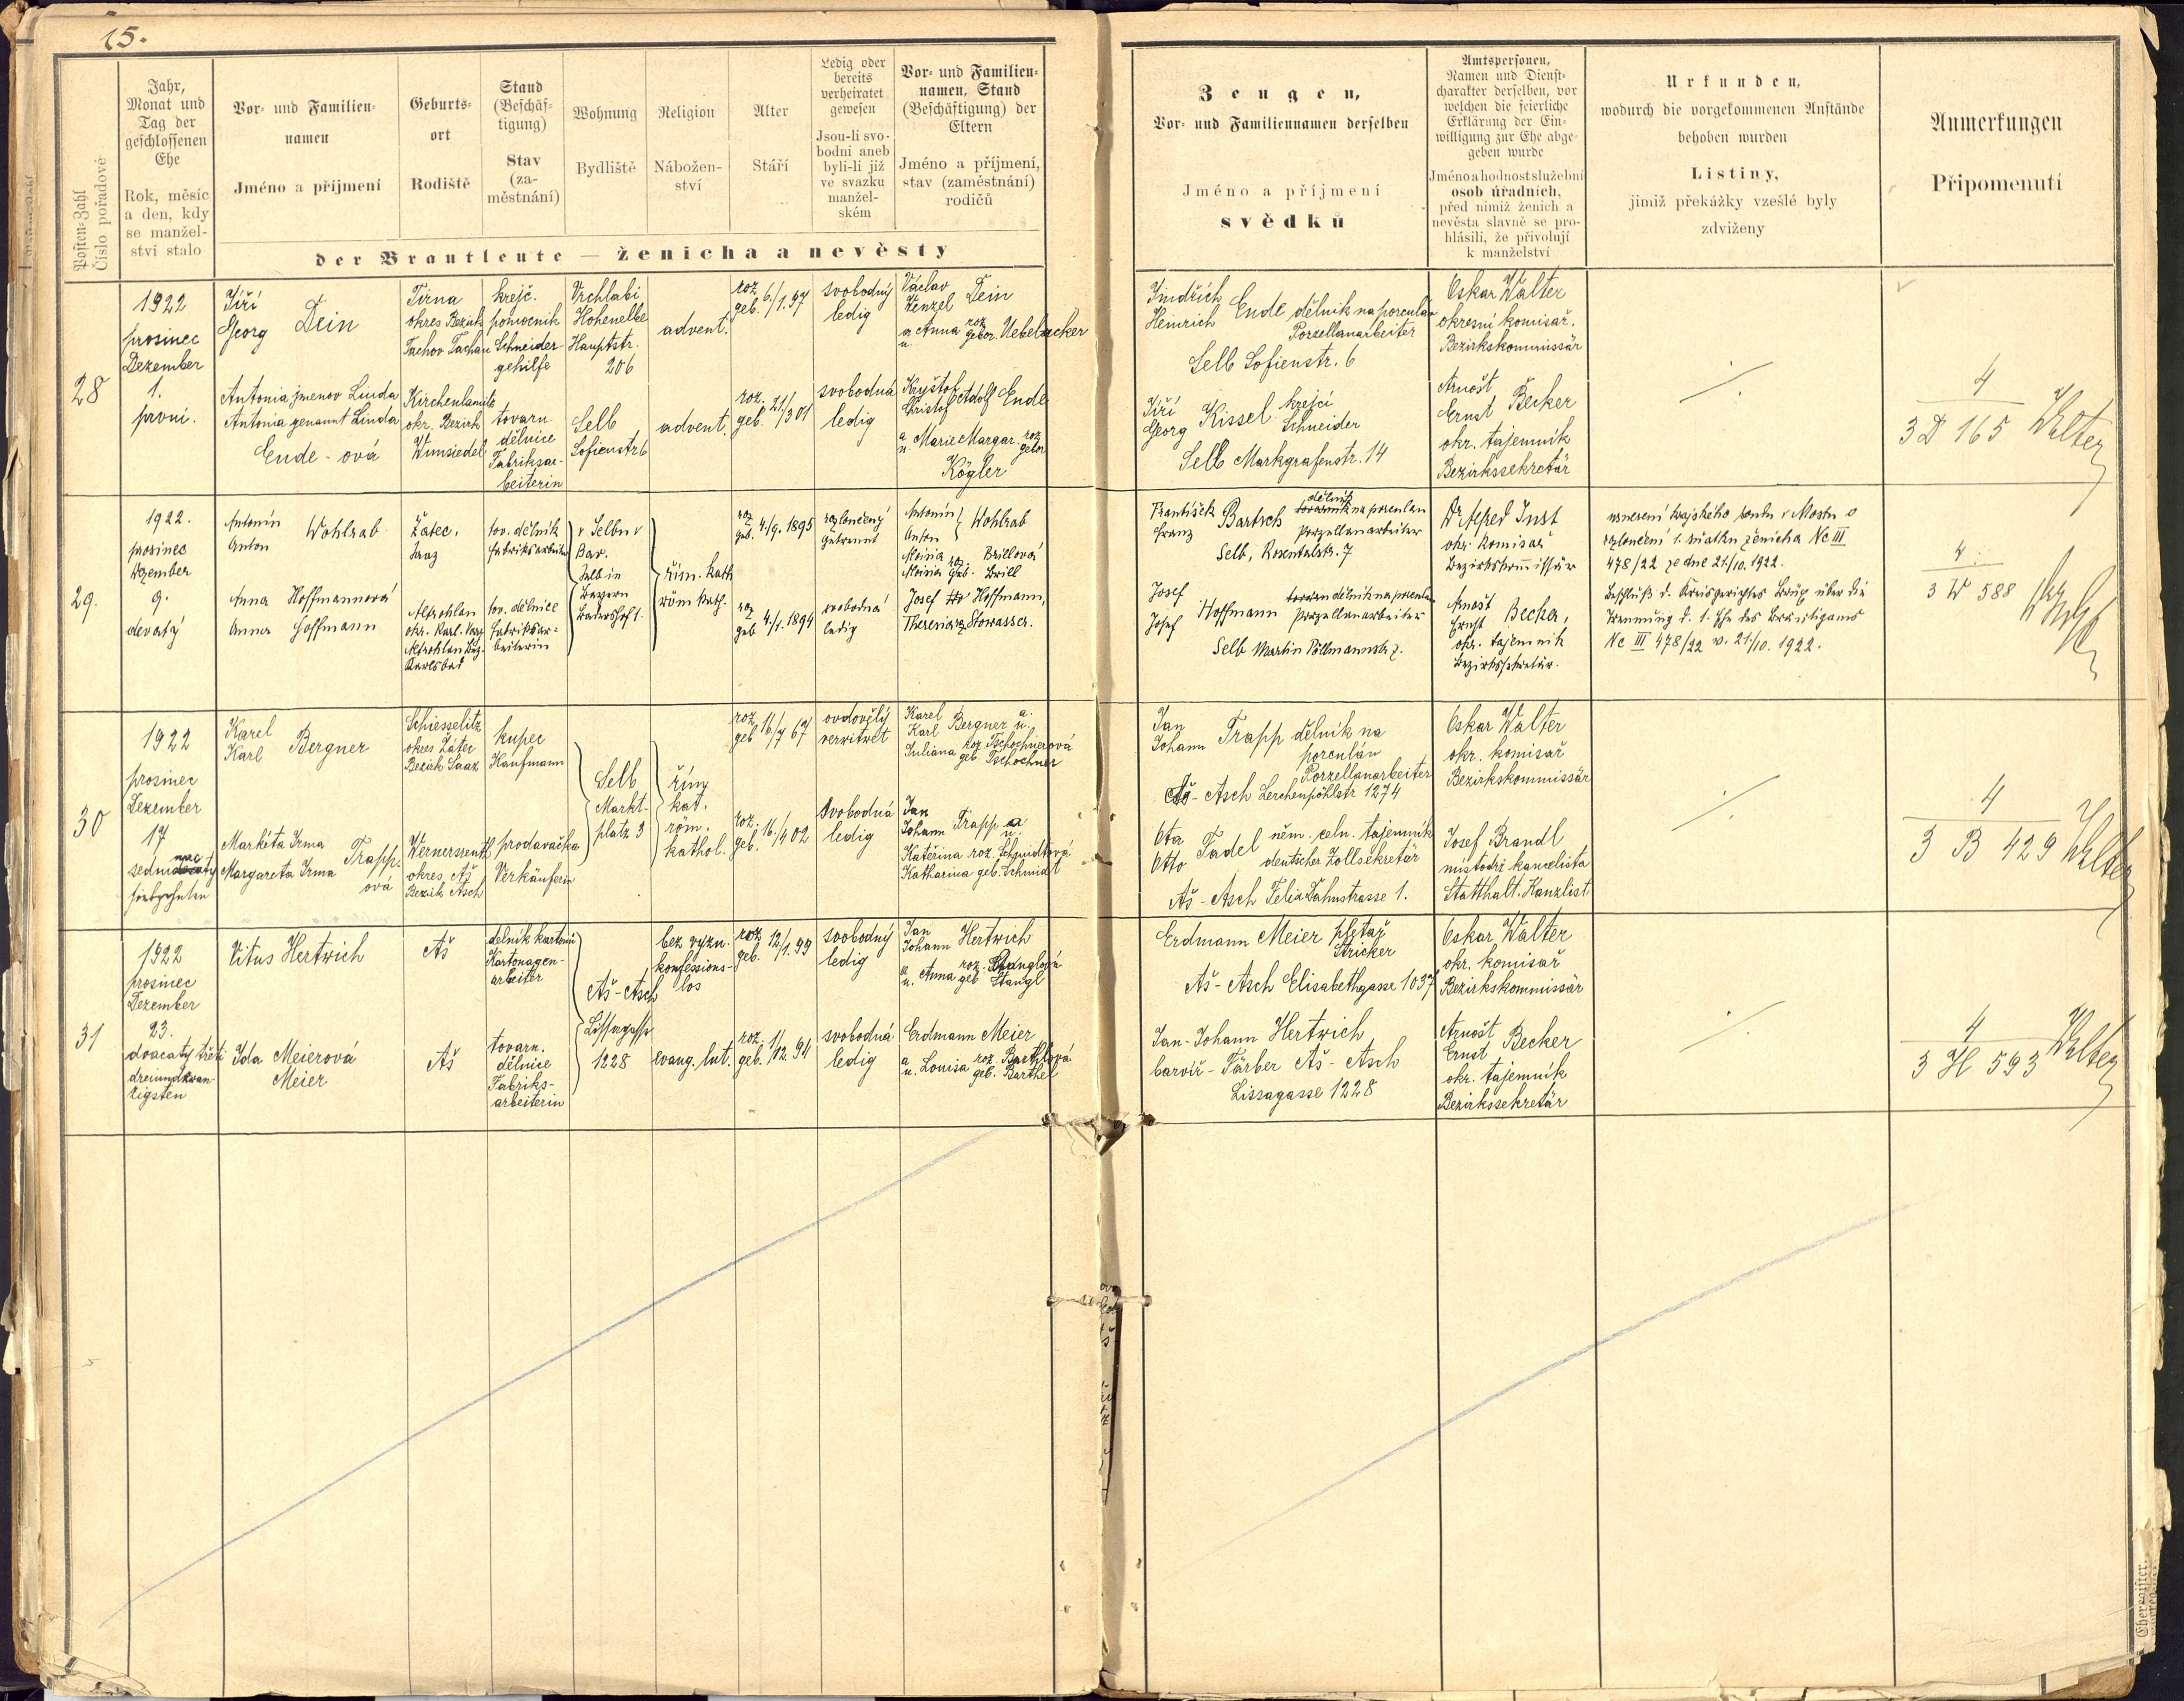 15.
Posten-Zahl
Číslo pořadové
Jahr,
Monat und
Tag der
geschlossenen
Ehe
Rok, měsíc
a den, kdy
se manžel-
ství stalo
Vor- und Familien-
namen
Jméno a příjmení
Geburts-
ort
Rodiště
Stand
(Beschäf-
tigung)
Stav
(za-
městnání)
Wohnung
Bydliště
Religion
Nábožen-
ství
Alter
Stáří
Ledig oder
bereits
verheiratet
gewesen
Jsou-li svo-
bodni aneb
byli-li již
ve svazku
manžel-
ském
Vor- und Familien-
namen, Stand
(Beschäftigung) der
Eltern
Jméno a příjmení,
stav (zaměstnání)
rodičů
der Brautleute — ženicha a nevěsty
Zeugen,
Vor- und Familiennamen derselben
Jméno a příjmení
svědků
Amtspersonen,
Namen und Dienst-
charakter derselben, vor
welchen die feierliche
Erklärung der Ein-
willigung zur Ehe abge-
geben wurde
Jméno a hodnost služební
osob úřadních,
před nimiž ženich a
nevěsta slavně se pro-
hlásili, že přivolují
k manželství
Urkunden,
wodurch die vorgekommenen Anstände
behoben wurden
Listiny,
jimiž překážky vzešlé byly
zdviženy
Anmerkungen
Připomenutí
28
1922
prosinec
Dezember
1.
první.
Jiří
Georg Dein
Tirna
okres Bezirk
Tachov Tachau
krejč.
pomocník
Schneider-
gehilfe
Vrchlabi
Hohenelbe
Hauptstr.
206
advent.
roz.
geb. 6./1.97
svobodný
ledig
Václav
Wenzel Dein
a Anna roz.
u. gebor. Uebelacker
Antonia jmenov Linda
Antonia genannt Linda
Ende-ová
Kirchenlamitz
okr. Bezirk
Wunsiedel
tovarn
dělnice
Fabriksar-
beiterin
Selb
Sofienstr 6
advent.
roz.
geb. 21./3 01
svobodná
ledig
Kryštof
Christof Adolf Ende
a
u. Marie Margar. roz
gebor
Kögler
Jindřich
Heinrich Ende dělník na porculan
Porzellanarbeiter
Selb Sofienstr. 6
Jiří
Georg Kissel krejčí
Schneider
Selb Markgrafenstr. 14
Oskar Walter
okresní komisař.
Bezirkskommissär
Arnošt
Ernst Becker
okr. tajemník
Bezirkssekretär
4
3 D 165 Walter
29.
1922.
prosinec
Dezember
9.
devatý
Antonín
Anton Wohlrab
Žatec.
Saaz
tov. dělník
Fabriksarbeiter
v Selbu v
Bav.
Selb in
Bayern
řím. kath
röm. kath.
roz
geb. 4./9. 1895
rozloučený
getrennt
Antonín
Anton Wohlrab
Aloisia roz. Brillová
Aloisia geb. Brill
Anna Hoffmannová
Anna Hoffmann
Altrohlau
okr. Karl. Vary
Altrohlau Bez.
Karlsbad
tov. dělnice
Fabriksar-
beiterin
roz
geb. 4./1. 1894
svobodná
ledig
Josef Hoffmann,
Theresia roz Stowasser.
František
Franz Bartsch dělník na porculan
Porzellanarbeiter
Selb, Rosentalstr. 7
Josef
Josef Hoffmann dělník na porculan
Porzellanarbeiter
Selb Martin Pöllmannstr 7.
Dr Alfred Just
okr. komisař
Bezirkskommissär
Arnošt
Ernst Becker,
okr. tajemník
Bezirkssekretär.
usnesení krajského soudu v Mostu o
rozloučení 1. sňatku ženicha Nc III
478/22 ze dne 21./10. 1922.
Beschluß d. Kreisgerichtes Brüx über die
Trennung d. 1. Ehe des Bräutigams
Nc III 478/22 v. 21./10. 1922.
4.
3 W 588
30
1922
prosinec
Dezember
17
sedmnactý
siebzehnten
Karel
Karl Bergner
Schiesselitz
okres Žatec
Bezirk Saaz
kupec
Kaufmann
Selb
Markt-
platz 3
řím
kat.
röm.
kathol.
roz
geb 16/7 67
ovdovělý
verwitwet
Karel
Karl Bergner a.
u.
Juliana roz. Tschochnerová
geb. Tschochner
Markéta Irma
Margareta Irma Trapp-
ová
Wernersreuth
okres Aš
Bezirk Asch
prodavačka
Verkäuferin
roz.
geb. 16./4 02
svobodná
ledig
Jan
Johann Trapp a
u.
Kateřina roz. Schmidtová
Katharina geb. Schmidt
Jan
Johann Trapp dělník na
porculán
Porzellanarbeiter
Aš-Asch Lerchenpöhlstr 1274
Ota
Otto Fadel něm. celn. tajemník
deutscher Zollsekretär
Aš-Asch Felix Dahnstrasse 1.
Oskar Walter
okr. komisař
Bezirkskommissär
Josef Brandl
místodrž kancelista
Statthalt. Kanzlist
4
3 B 429 Walter
31
1922
prosinec
Dezember
23.
dvacatý třetí
dreiundzwan-
zigsten
Vitus Hertwich
Aš
dělník kartonů
Kartonagen-
arbeiter
Aš-Asch
Lissagasse
1228
bez vyzn.
konfessions-
los
roz
geb. 12./1.99
svobodný
ledig
Jan
Johann Hertwich
a
u. Anna roz. Stanglová
geb Stangl
Ida Meierová
Meier
Aš
tovarn.
dělnice
Fabriks-
arbeiterin
evang. lut.
roz.
geb. 11./12. 94
svobodná
ledig
Erdmann Meier
a
u. Louisa roz. Barthlová
geb. Barthel
Erdmann Meier pletař
Stricker
Aš-Asch Elisabethgasse 1037
Jan-Johann Hertwich
barvíř-Färber Aš-Asch
Lissagasse 1228
Oskar Walter
okr. komisař
Bezirkskommissär
Arnošt
Ernst Becker
okr. tajemník
Bezirkssekretär
4
3 H 593 Walter